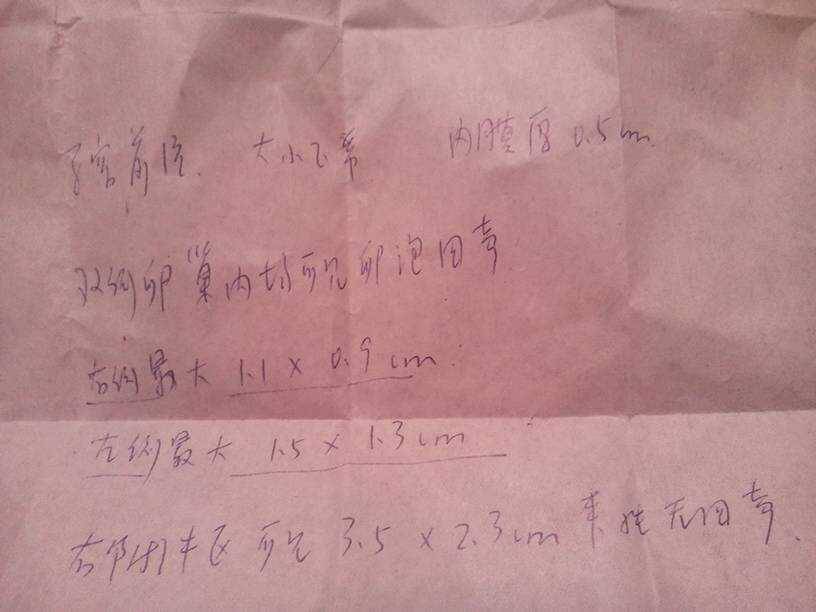 子宫前位. 大小正常 内膜厚 0.5cm.
双侧卵巢内均可见卵泡回声
右侧最大 1.1 × 0.9 cm.
左侧最大 1.5 × 1.3 cm
右附件区可见 3.5 × 2.3cm 囊性无回声.